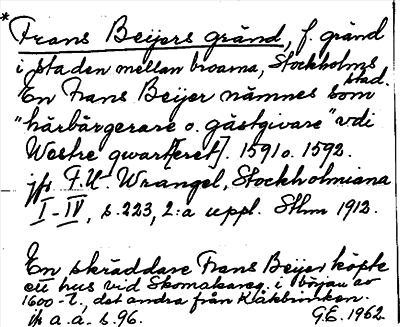 * Frans Beijers gränd, f. gränd
i staden mellan broarna, Stockholms
stad.
En Frans Beijer nämnes som
"härbärgerare o. gästgivare" vdi
Westre qwart[eret]. 1591 o. 1592.
jfr F.U. Wrangel, Stockholmiana
I-IV, s. 223, 2:a uppl. Sthlm 1912.
En skräddare Frans Beijer köpte
ett hus vid Skomakareg. i början av
1600-t., det andra från Kåkbrinken.
jfr a.a. s. 96. G.E. 1962.